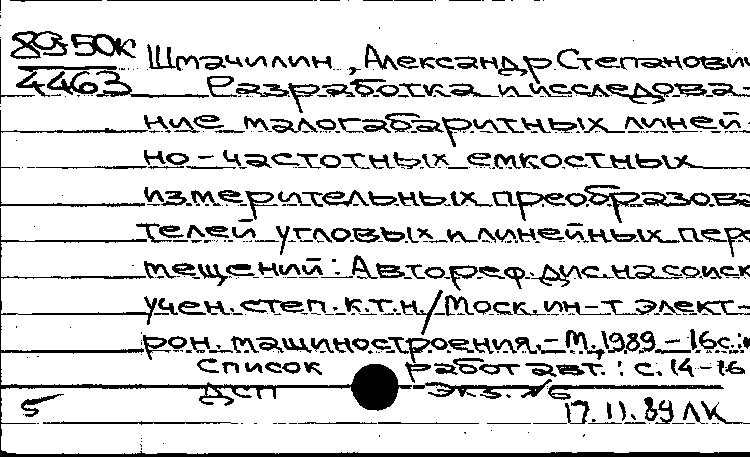 89-50К
4463
Шмачилин, Александр Степанович
Разработка и исследова-
ние малогабаритных линей-
но-частотных емкостных
измерительных преобразова
телей угловых и линейных пере
мещений: Автореф. дис. на соиск
учен. степ. к.т.н./Моск. ин-т элект-
рон. машиностроения.-М., 1989-16с.:
Список работ авт.: с. 14-16
ДСП Экз. №6
5 17.11.89 ЛК